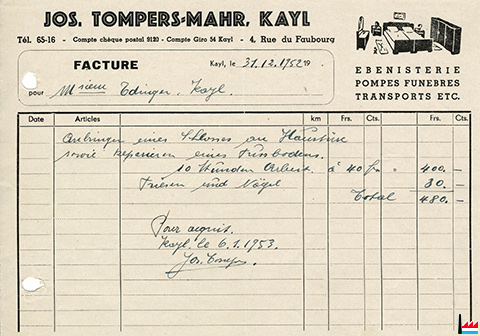 JOS. TOMPERS-MAHR, KAYL
Tél. 65-16 - Compte chèque postal 9120 - Compte Giro 54 Kayl - 4, Rue du Faubourg
FACTURE
Kayl, le 31.12.1952 19
pour Msieur Edinger, Kayl.
EBENISTERIE
POMPES FUNEBRES
TRANSPORTS ETC.
Date Articles km Frs. Cts. Frs. Cts.
Anbringen eines Schlosses an Haustüre
sowie Reparieren eines Fussbodens.
10 Stunden Arbeit à 40 frs 400.—
und Nägel 80.—
Total 480.—
Pour acquit.
Kayl, le 6.1.1953.
Jos. Tompers